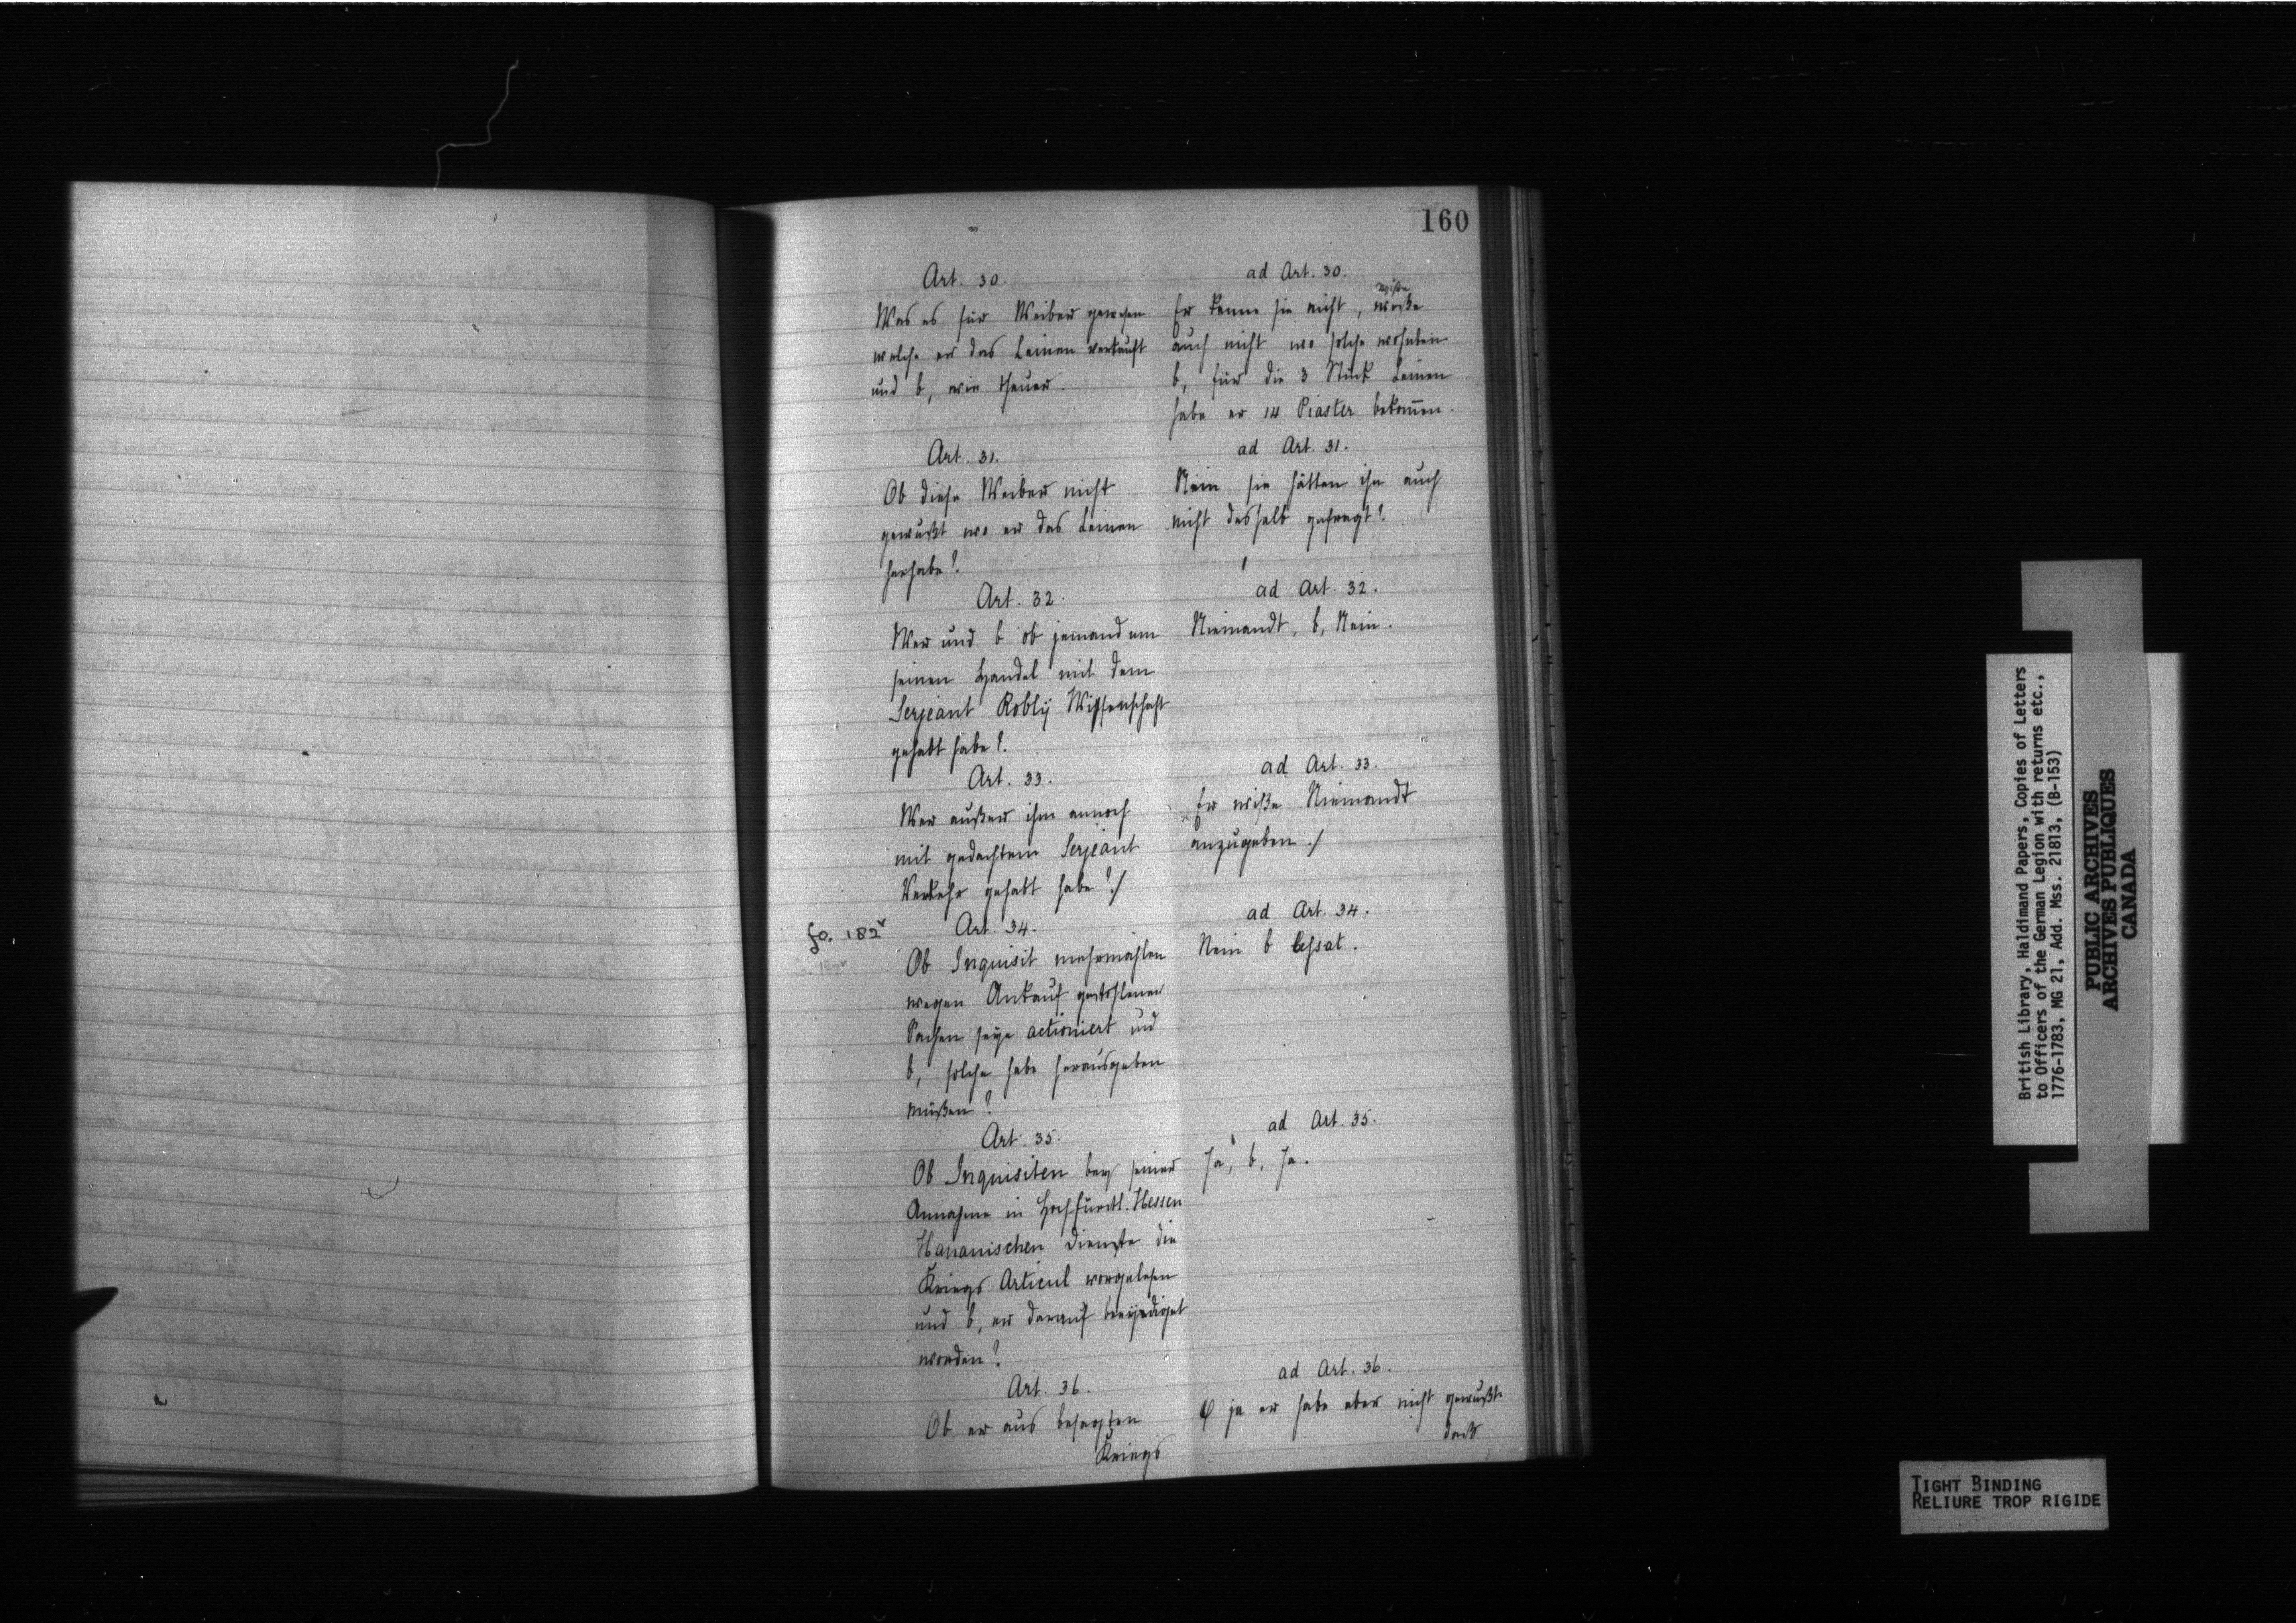 160
Art. 30.
Was es für Weiber gewesen
welche er das Leinen verkauft
und b, wie theuer.
ad Art. 30.
wiße
Er kenne sie nicht, weße
auch nicht wo solche wohnten
b, für die 3 Stück Leinen
habe er 14 Piaster bekom̄en.
Art. 31.
Ob diese Weiber nicht
gewußt wo er das Leinen
herhabe?
ad Art. 31.
Nein sie hätten ihn auch
nicht deshalb gefragt?
Art. 32.
Wer und b ob jemand um
seinen Handel mit dem
Serjeant Robly Wissenschaft
gehabt habe?
ad Art. 32.
Niemandt, b, Nein.
Art. 33.
Wer außer ihm annoch
mit gedachtem Serjeant
Verkehr gehabt habe?/
ad Art. 33.
Er wiße Niemandt
anzugeben./
fo. 182v
fo. 182v
Art. 34.
Ob Inquisit mehrmahlen
wegen Ankauf gestohlener
Sachen seye actioniert und
b, solche habe herausgeben
müßen?
ad Art. 34.
Nein b cessat.
Art. 35.
Ob Inquisiten bey seiner
Annahme in Hochfürstl. Hessen
Hananischen Dienste die
Kriegs Articul vorgelesen
und b, er darauf beeydiget
worden?
ad Art. 35.
Ja, b, Ja.
Art. 36.
Ob er aus besagten
Kriegs
ad Art. 36.
O ja er habe aber nicht gewußt
daß
British Library, Haldimand Papers, Copies of Letters
to Officers of the German Legion with returns etc.,
1776-1783, MG 21, Add. Mss. 21813, (B-153)
PUBLIC ARCHIVES
ARCHIVES PUBLIQUES
CANADA
TIGHT BINDING
RELIURE TROP RIGIDE